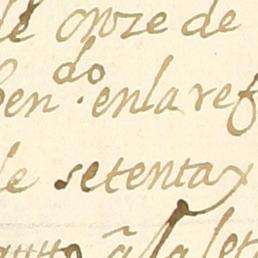 de onze de
ben.do en la ref
de setenta y
à la let